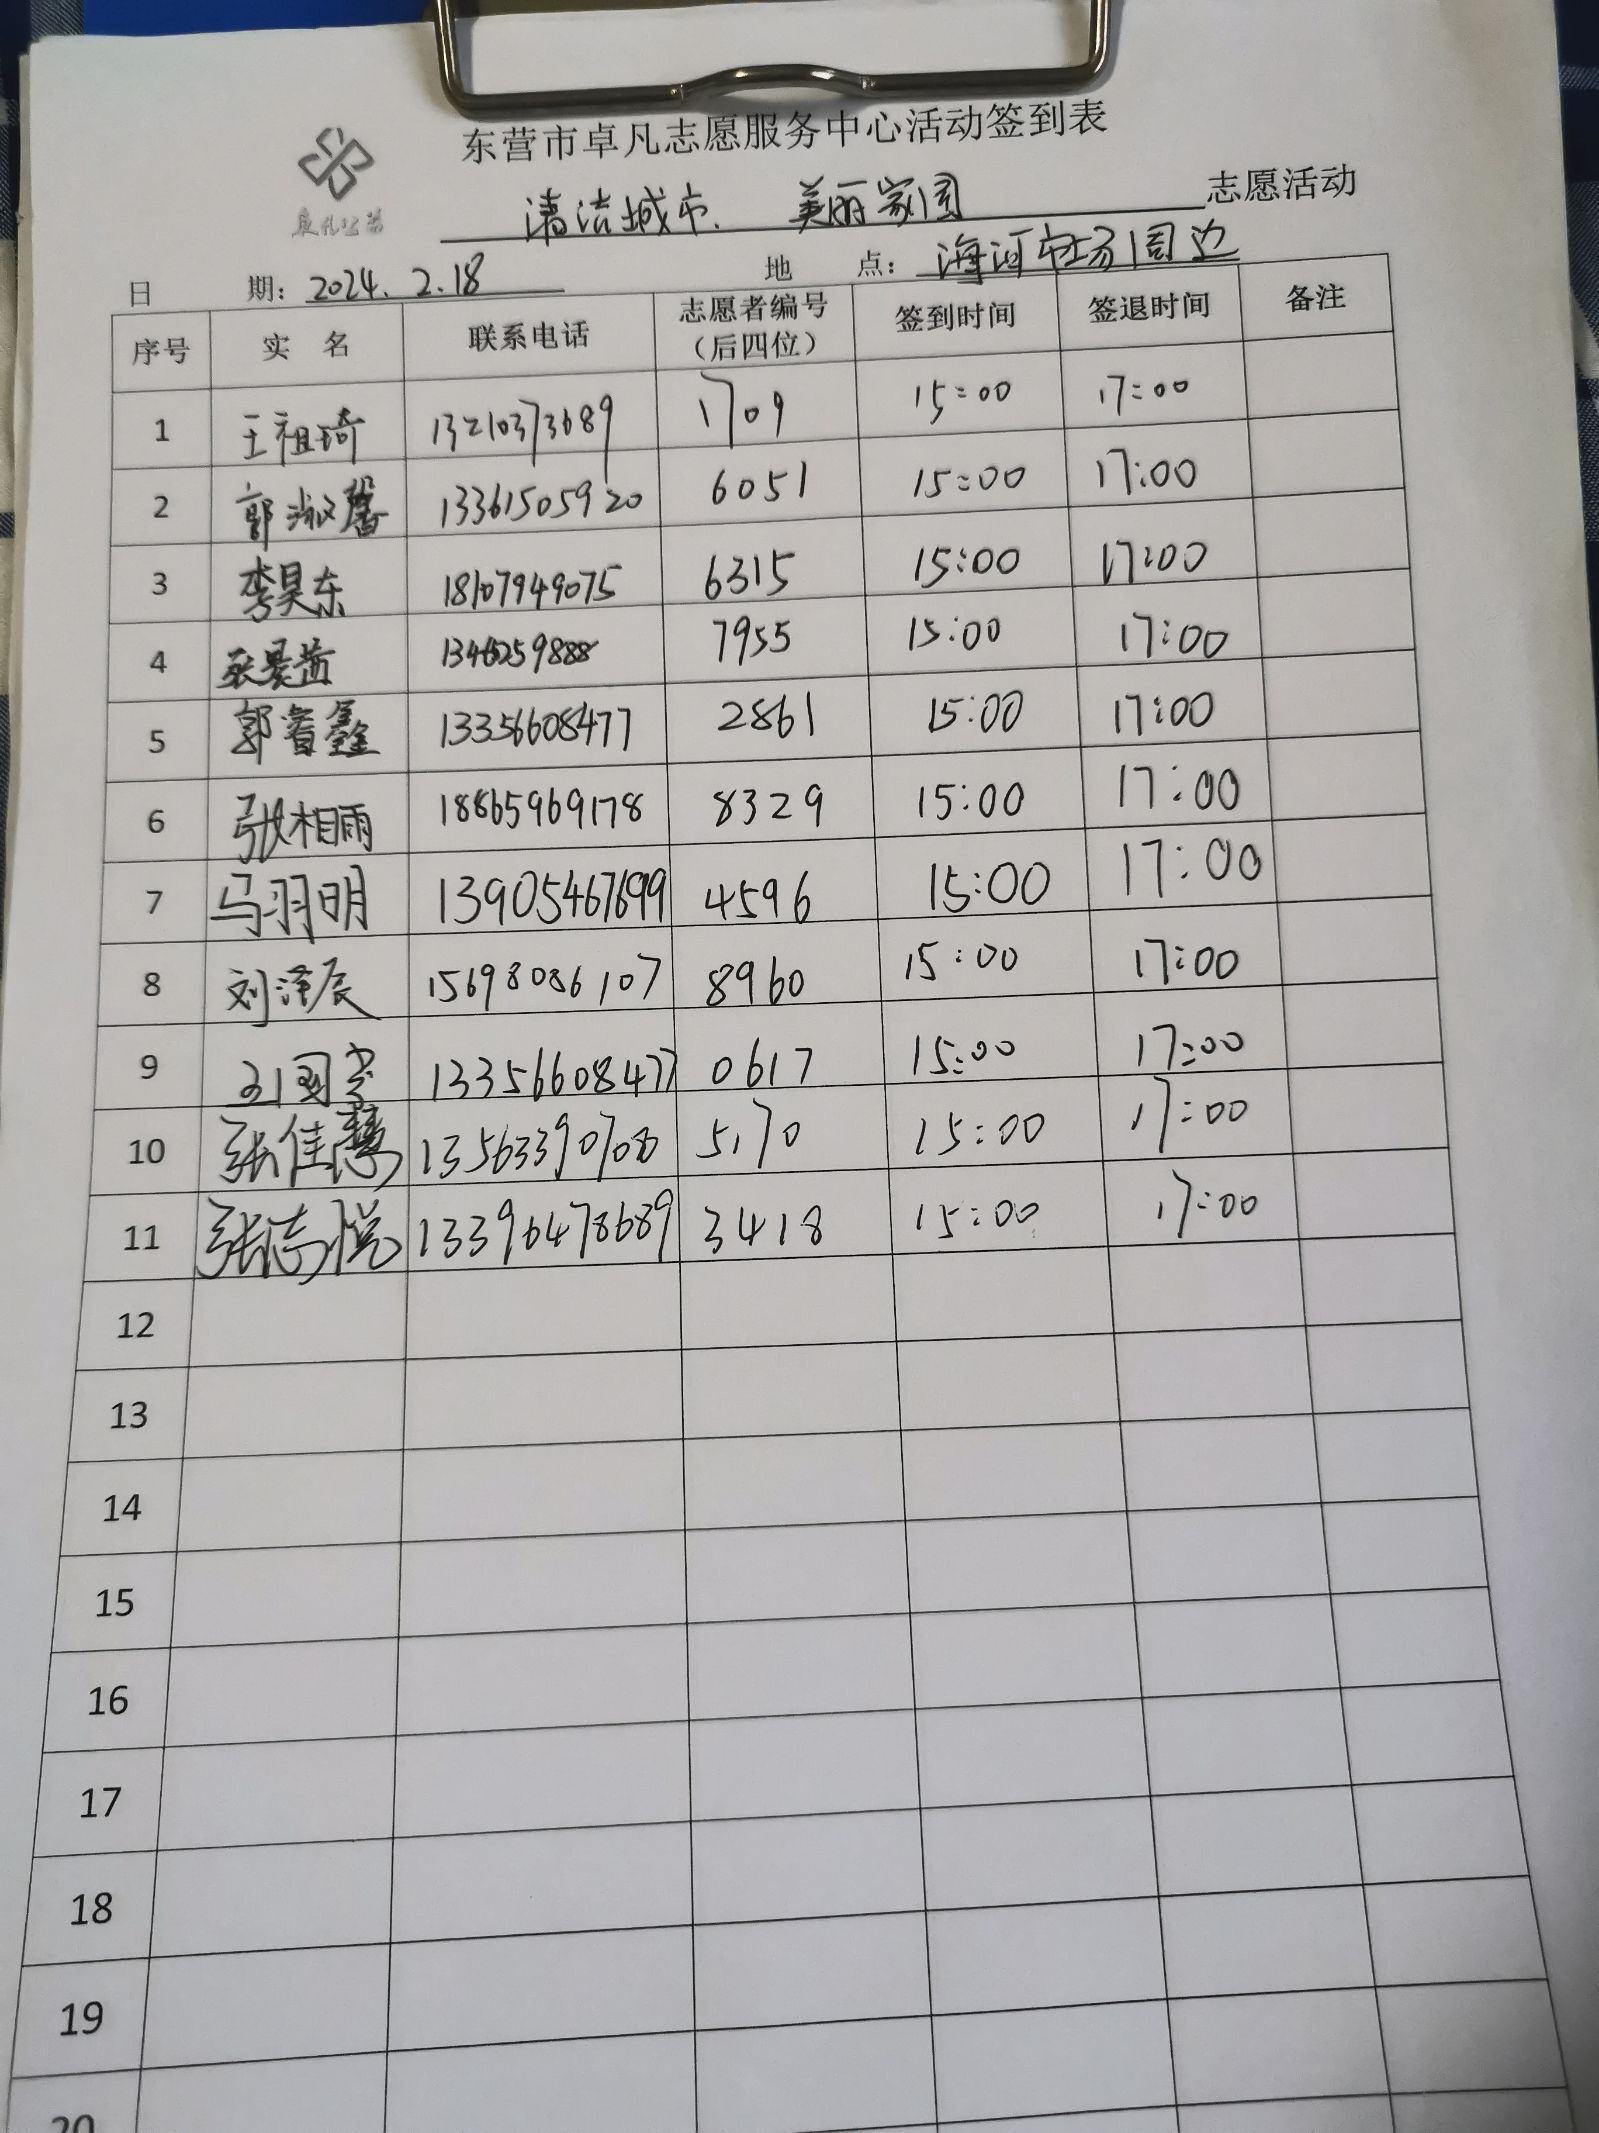 东营市卓凡志愿服务中心活动签到表
清洁城市、美丽家园 志愿活动
日期：2024.2.18 地点：海河市场周边
序号 实名 联系电话 志愿者编号（后四位） 签到时间 签退时间 备注
1 王祖琦 13210373689 1709 15:00 17:00
2 郭淑馨 13361505920 6051 15:00 17:00
3 李昊东 18107949075 6315 15:00 17:00
4 7955 15:00 17:00
5 郭睿鑫 13356608477 2861 15:00 17:00
6 张相雨 18865969178 8329 15:00 17:00
7 马羽明 13905467699 4596 15:00 17:00
8 刘泽辰 15698086107 8960 15:00 17:00
9 13356608477 0617 15:00 17:00
10 张佳慧 13563390708 5170 15:00 17:00
11 张志悦 13396478689 3418 15:00 17:00
12
13
14
15
16
17
18
19
20